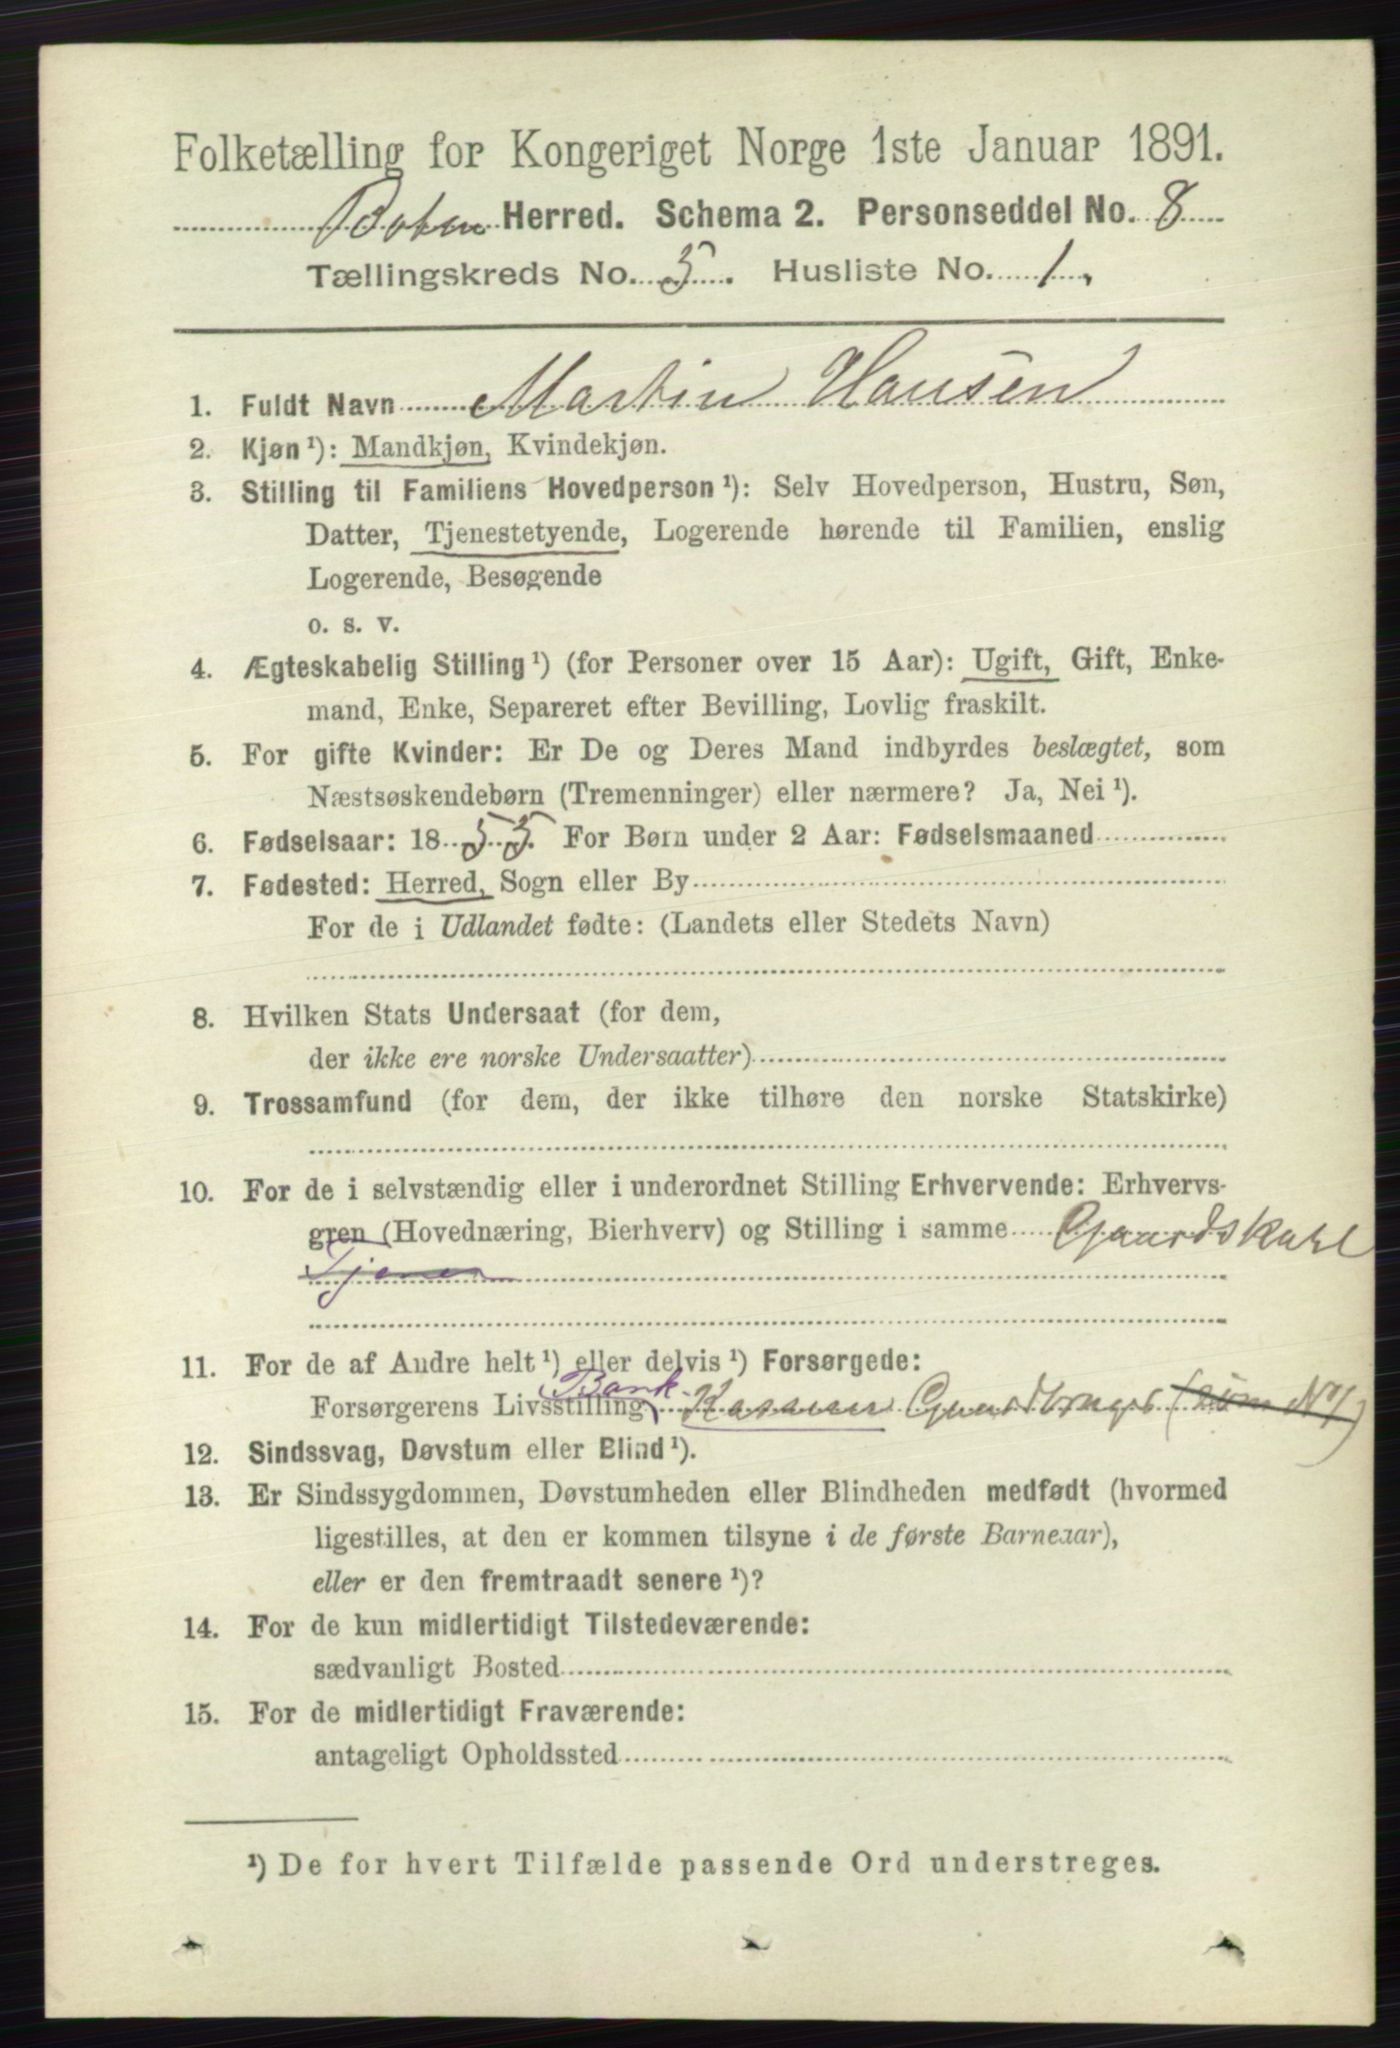 Folketælling for Kongeriget Norge 1ste Januar 1891.
Botne Herred. Schema 2. Personseddel No. 8
Tællingskreds No. 5. Husliste No. 1.
1. Fuldt Navn Martin Hansen
2. Kjøn ¹): Mandkjøn, Kvindekjøn.
3. Stilling til Familiens Hovedperson ¹): Selv Hovedperson, Hustru, Søn,
Datter, Tjenestetyende, Logerende hørende til Familien, enslig
Logerende, Besøgende
o. s. v.
4. Ægteskabelig Stilling ¹) (for Personer over 15 Aar): Ugift, Gift, Enke-
mand, Enke, Separeret efter Bevilling, Lovlig fraskilt.
5. For gifte Kvinder: Er De og Deres Mand indbyrdes beslægtet, som
Næstsøskendebørn (Tremenninger) eller nærmere? Ja, Nei ¹).
6. Fødselsaar: 18 55. For Børn under 2 Aar: Fødselsmaaned
7. Fødested: Herred, Sogn eller By
For de i Udlandet fødte: (Landets eller Stedets Navn)
8. Hvilken Stats Undersaat (for dem,
der ikke ere norske Undersaatter)
9. Trossamfund (for dem, der ikke tilhøre den norske Statskirke)
10. For de i selvstændig eller i underordnet Stilling Erhvervende: Erhvervs-
gren (Hovednæring, Bierhverv) og Stilling i samme Gaardskarl
Tjener
11. For de af Andre helt ¹) eller delvis ¹) Forsørgede:
Bank
Forsørgerens Livsstilling Gaardbruger
12. Sindssvag, Døvstum eller Blind ¹).
13. Er Sindssygdommen, Døvstumheden eller Blindheden medfødt (hvormed
ligestilles, at den er kommen tilsyne i de første Barneaar),
eller er den fremtraadt senere ¹)?
14. For de kun midlertidigt Tilstedeværende:
sædvanligt Bosted
15. For de midlertidigt Fraværende:
antageligt Opholdssted
¹) De for hvert Tilfælde passende Ord understreges.